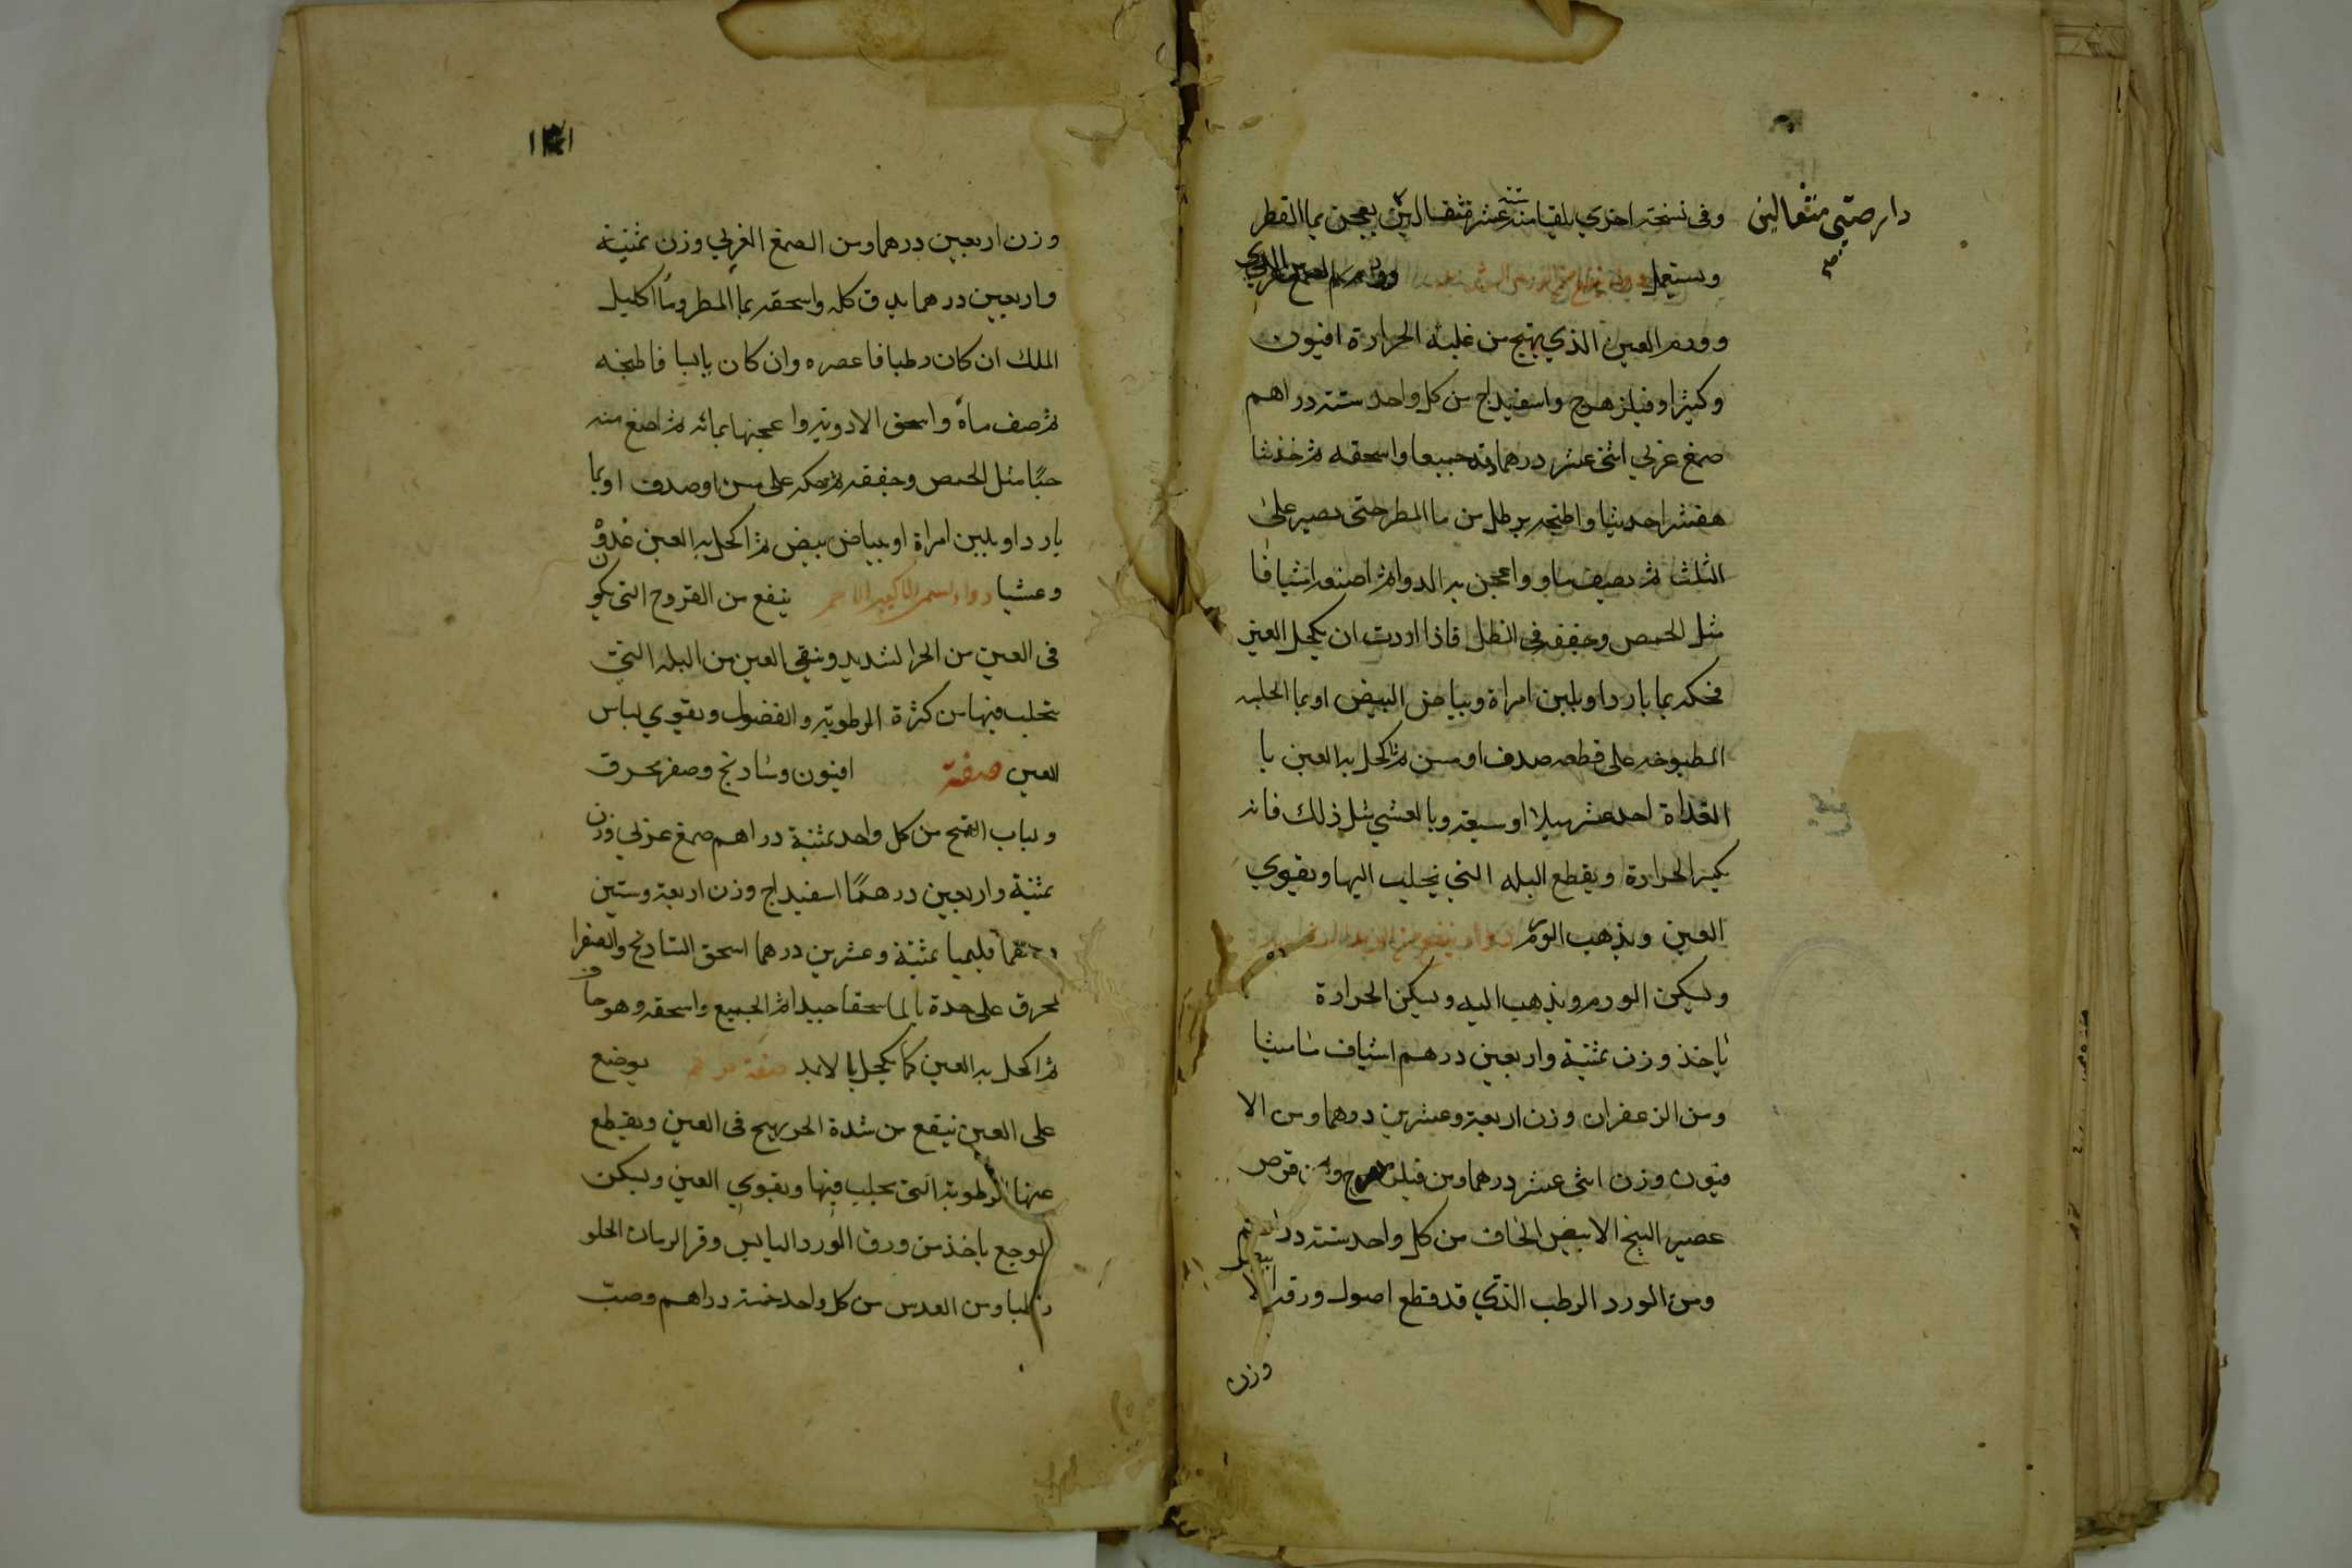 دار صيني مثقالين
صح
وفى نسخة اخري يلقا منه ستة عشر مثقالين يعجن بما القطر
ويستعمل
وورم العين الذي يهيج من غلبة الحرارة افيون
وكثيرا وفيلزهرج واسفيداج من كل واحد ستة دراهم
صمغ عربي اثنى عشر درهما دقه جميعا واسحقه ثم خذ شا
هفشر احديثا واطبخه برطل من ما المطر حتى يصير على
الثلث ثم يصيف ماوه واعجن به الدوا ثم اصنعه اشيافا
مثل الحمص وجففه في الظل فاذا اردت ان يكحل العين
فحكه بما بارد او بلبن امراة وبياض البيض او بما الحلبه
المطبوخه على قطعه صدف او مسن ثم اكحل به العين با
الغداة احد عشر ميلا او سبعة وبالعشي مثل ذلك فانه
يكسر الحرارة ويقطع البله التي تجلب اليها ويقوي
العين ويذهب الورم دواء ينفع من الرمد
ويسكن الورم ويذهب اليه ويسكن الحرارة
ياخذ وزن ثمنية واربعين درهم اشياف ماميثا
ومن الزعفران وزن اربعة وعشرين درهما ومن الا
فيون وزن اثنى عشر درهما ومن فيلزهرج ومن قرص
عصير البنج الابيض الجاف من كل واحد ستة دراهم
ومن الورد الرطب الذي قد قطع اصول ورقه الا
وزن
وزن اربعين درهما ومن الصمغ العربي وزن ثمنية
واربعين درهما يدق كله واسحقه بما المطر وما اكليل
الملك ان كان رطبا فاعصره وان كان يابسا فاطبخه
ثم صف ماه واسحق الادوية واعجنها بمائه ثم اصنع منه
حبا مثل الحمص وجففه ثم حكه على مسن او صدف او بما
بارد او بلبن امراة او ببياض بيض ثم اكحل به العين غدوة
وعشيا دواء اسمر الاكبير الاحمر ينفع من القروح التي تكون
فى العين من الحر الشديد وينقي العين من البله التي
تتحلب فيها من كثرة الرطوبة والفضول ويقوي لباس
العين صفته افيون وشادنج وصفر محرق
ولباب القمح من كل واحد ثمنية دراهم صمغ عربي وزن
ثمنية واربعين درهمًا اسفيداج وزن اربعة وستين
درهما قليميا ثمنية وعشرين درهما اسحق الشادنج والصفر ا
لمحرق على حدة بالما سحقا جيدا ثم الجميع واسحقه وهو جاف
ثم اكحل به العين كما يكحل بالاثمد صفة مرهم يوضع
على العين ينفع من شدة الحر يهيج فى العين ويقطع
عنها الرطوبة التي تجلب فيها ويقوي العين ويسكن
الوجع ياخذ من ورق الورد اليابس وقشر الرمان الحلو
رطبا ومن العدس من كل واحد خمسة دراهم وصب